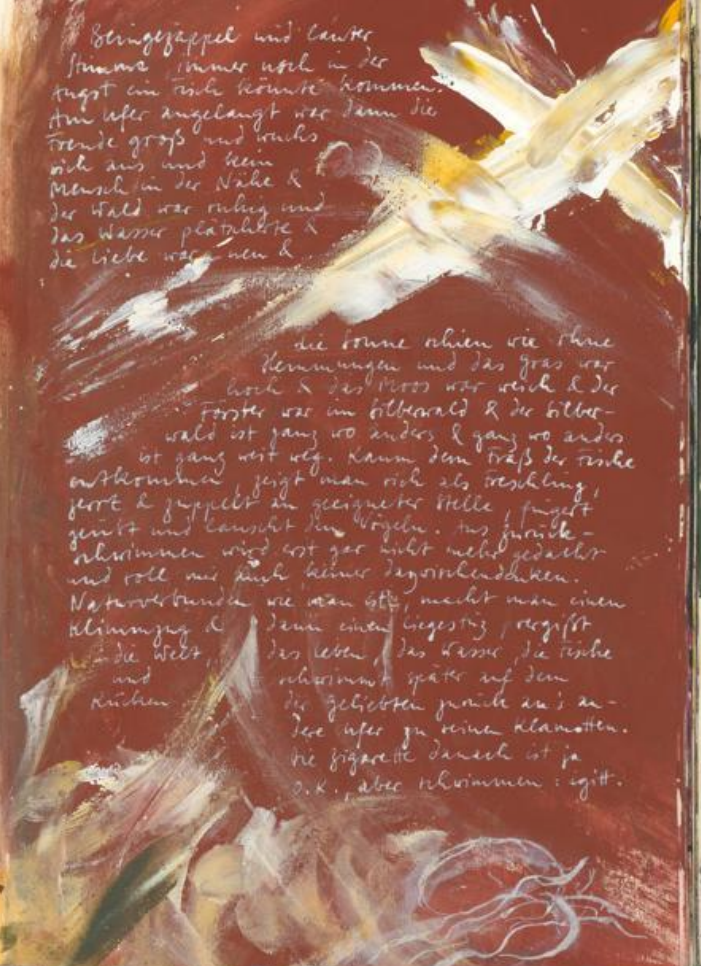 Beingezappel und lauter
Stimme, immer noch in der
Angst ein Fisch könnte kommen.
Am Ufer angelangt war dann die
Freude groß und wuchs
sich aus und kein
Mensch in der Nähe &
der Wald war ruhig und
das Wasser plätscherte &
die Liebe war neu &
die Sonne schien wie ohne
Hemmungen und das Gras war
hoch & das Moos war weich & der
Förster war im Silberwald & der Silber-
wald ist ganz wo anders & ganz wo anders
ist ganz weit weg. Kaum dem Fraß der Fische
entkommen, zeigt man sich als Frechling,
zerrt & zuppelt an geeigneter Stelle, fingert
geübt und lauscht den Vögeln. Ans zurück-
schwimmen wird erst gar nicht mehr gedacht
und soll mir auch keiner dazwischendenken.
Naturverbunden wie man ist, macht man einen
Klimmzug & dann einen Liegestütz, vergißt
die Welt, das Leben, das Wasser, die Fische
und schwimmt später auf dem
Rücken der geliebten zurück an's an-
dere Ufer zu seinen Klamotten.
Die Zigarette danach ist ja
o.k., aber schwimmen: igitt.